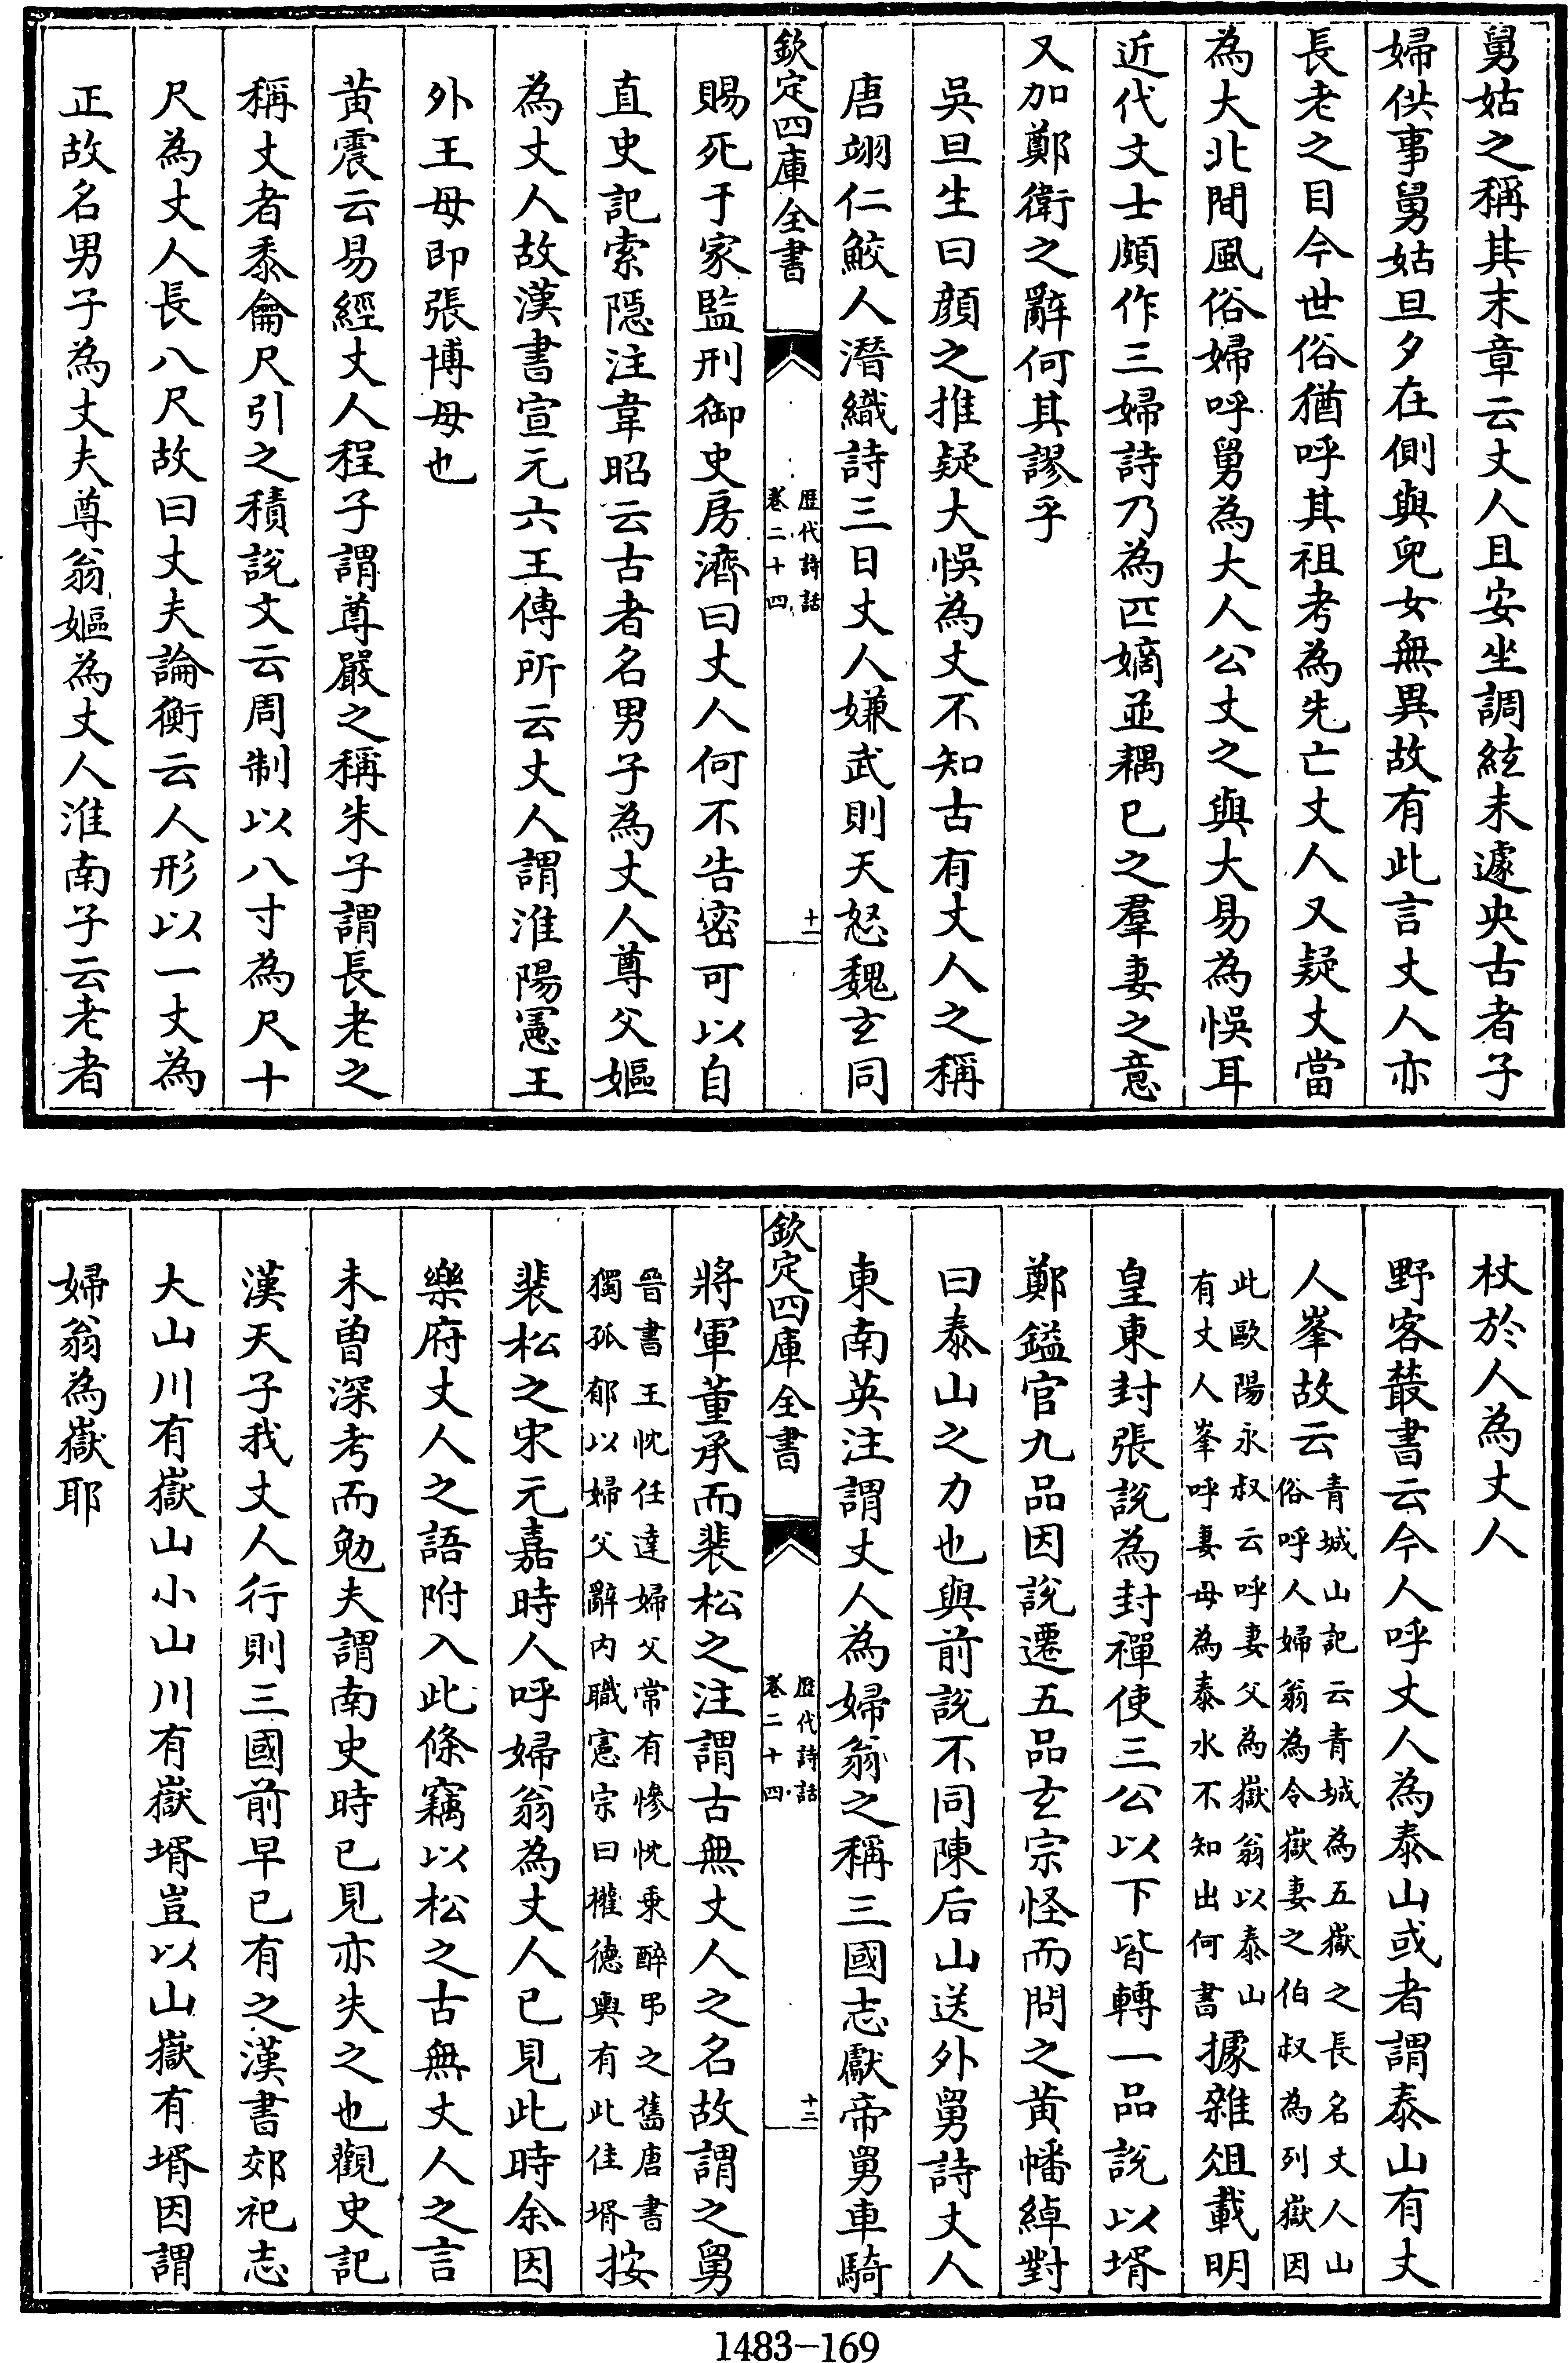 舅姑之稱其末章云丈人且安坐調絃未遽央古者子
婦供事舅姑旦夕在側與兒女無異故有此言丈人亦
長老之目今世俗猶呼其祖考為先亡丈人又疑丈當
為大北間風俗婦呼舅為大人公丈之與大易為悞耳
近代文士頗作三婦詩乃為匹嫡並耦已之羣妻之意
又加鄭衛之辭何其謬乎
吳旦生曰顔之推疑大悞為丈不知古有丈人之稱
唐翊仁鮫人潛織詩三日丈人嫌武則天怒魏玄同
欽定四庫全書
歴代詩話
卷二十四
十一
賜死于家監刑御史房濟曰丈人何不告密可以自
直史記索隱注韋昭云古者名男子為丈人尊父嫗
為丈人故漢書宣元六王傳所云丈人謂淮陽憲王
外王母即張博母也
黄震云易經丈人程子謂尊嚴之稱朱子謂長老之
稱丈者黍龠尺引之積説文云周制以八寸為尺十
尺為丈人長八尺故曰丈夫論衡云人形以一丈為
正故名男子為丈夫尊翁嫗為丈人淮南子云老者
杖於人為丈人
野客叢書云今人呼丈人為泰山或者謂泰山有丈
人峯故云青城山記云青城為五嶽之長名丈人山
俗呼人婦翁為令嶽妻之伯叔為列嶽因
此歐陽永叔云呼妻父為嶽翁以泰山
有丈人峯呼妻母為泰水不知出何書據雜俎載明
皇東封張說為封禪使三公以下皆轉一品說以壻
鄭鎰官九品因說遷五品玄宗怪而問之黄幡綽對
曰泰山之力也與前說不同陳后山送外舅詩丈人
東南英注謂丈人為婦翁之稱三國志獻帝舅車騎
欽定四庫全書
歴代詩話
卷二十四
十二
將軍董承而裴松之注謂古無丈人之名故謂之舅
晉書王忱任達婦父常有慘忱乗醉弔之舊唐書
獨孤郁以婦父辭内職憲宗曰權德輿有此佳壻按
裴松之宋元嘉時人呼婦翁為丈人已見此時余因
樂府丈人之語附入此條竊以松之古無丈人之言
未曽深考而勉夫謂南史時已見亦失之也觀史記
漢天子我丈人行則三國前早已有之漢書郊祀志
大山川有嶽山小山川有嶽壻豈以山嶽有壻因謂
婦翁為嶽耶
1483-169